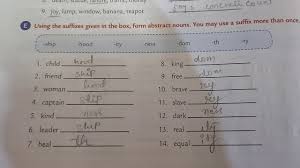 9. joy, lamp, window, banana, teapot
E Using the suffixes given in the box, form abstract nouns. You may use a suffix more than once.
-ship -hood -ity -ness -dom -th -ry
1. child hood
2. friend ship
3. woman hood
4. captain ship
5. kind ness
6. leader ship
7. heal th
8. king dom
9. free dom
10. brave ry
11. slave ry
12. dark ness
13. real ity
14. equal ity